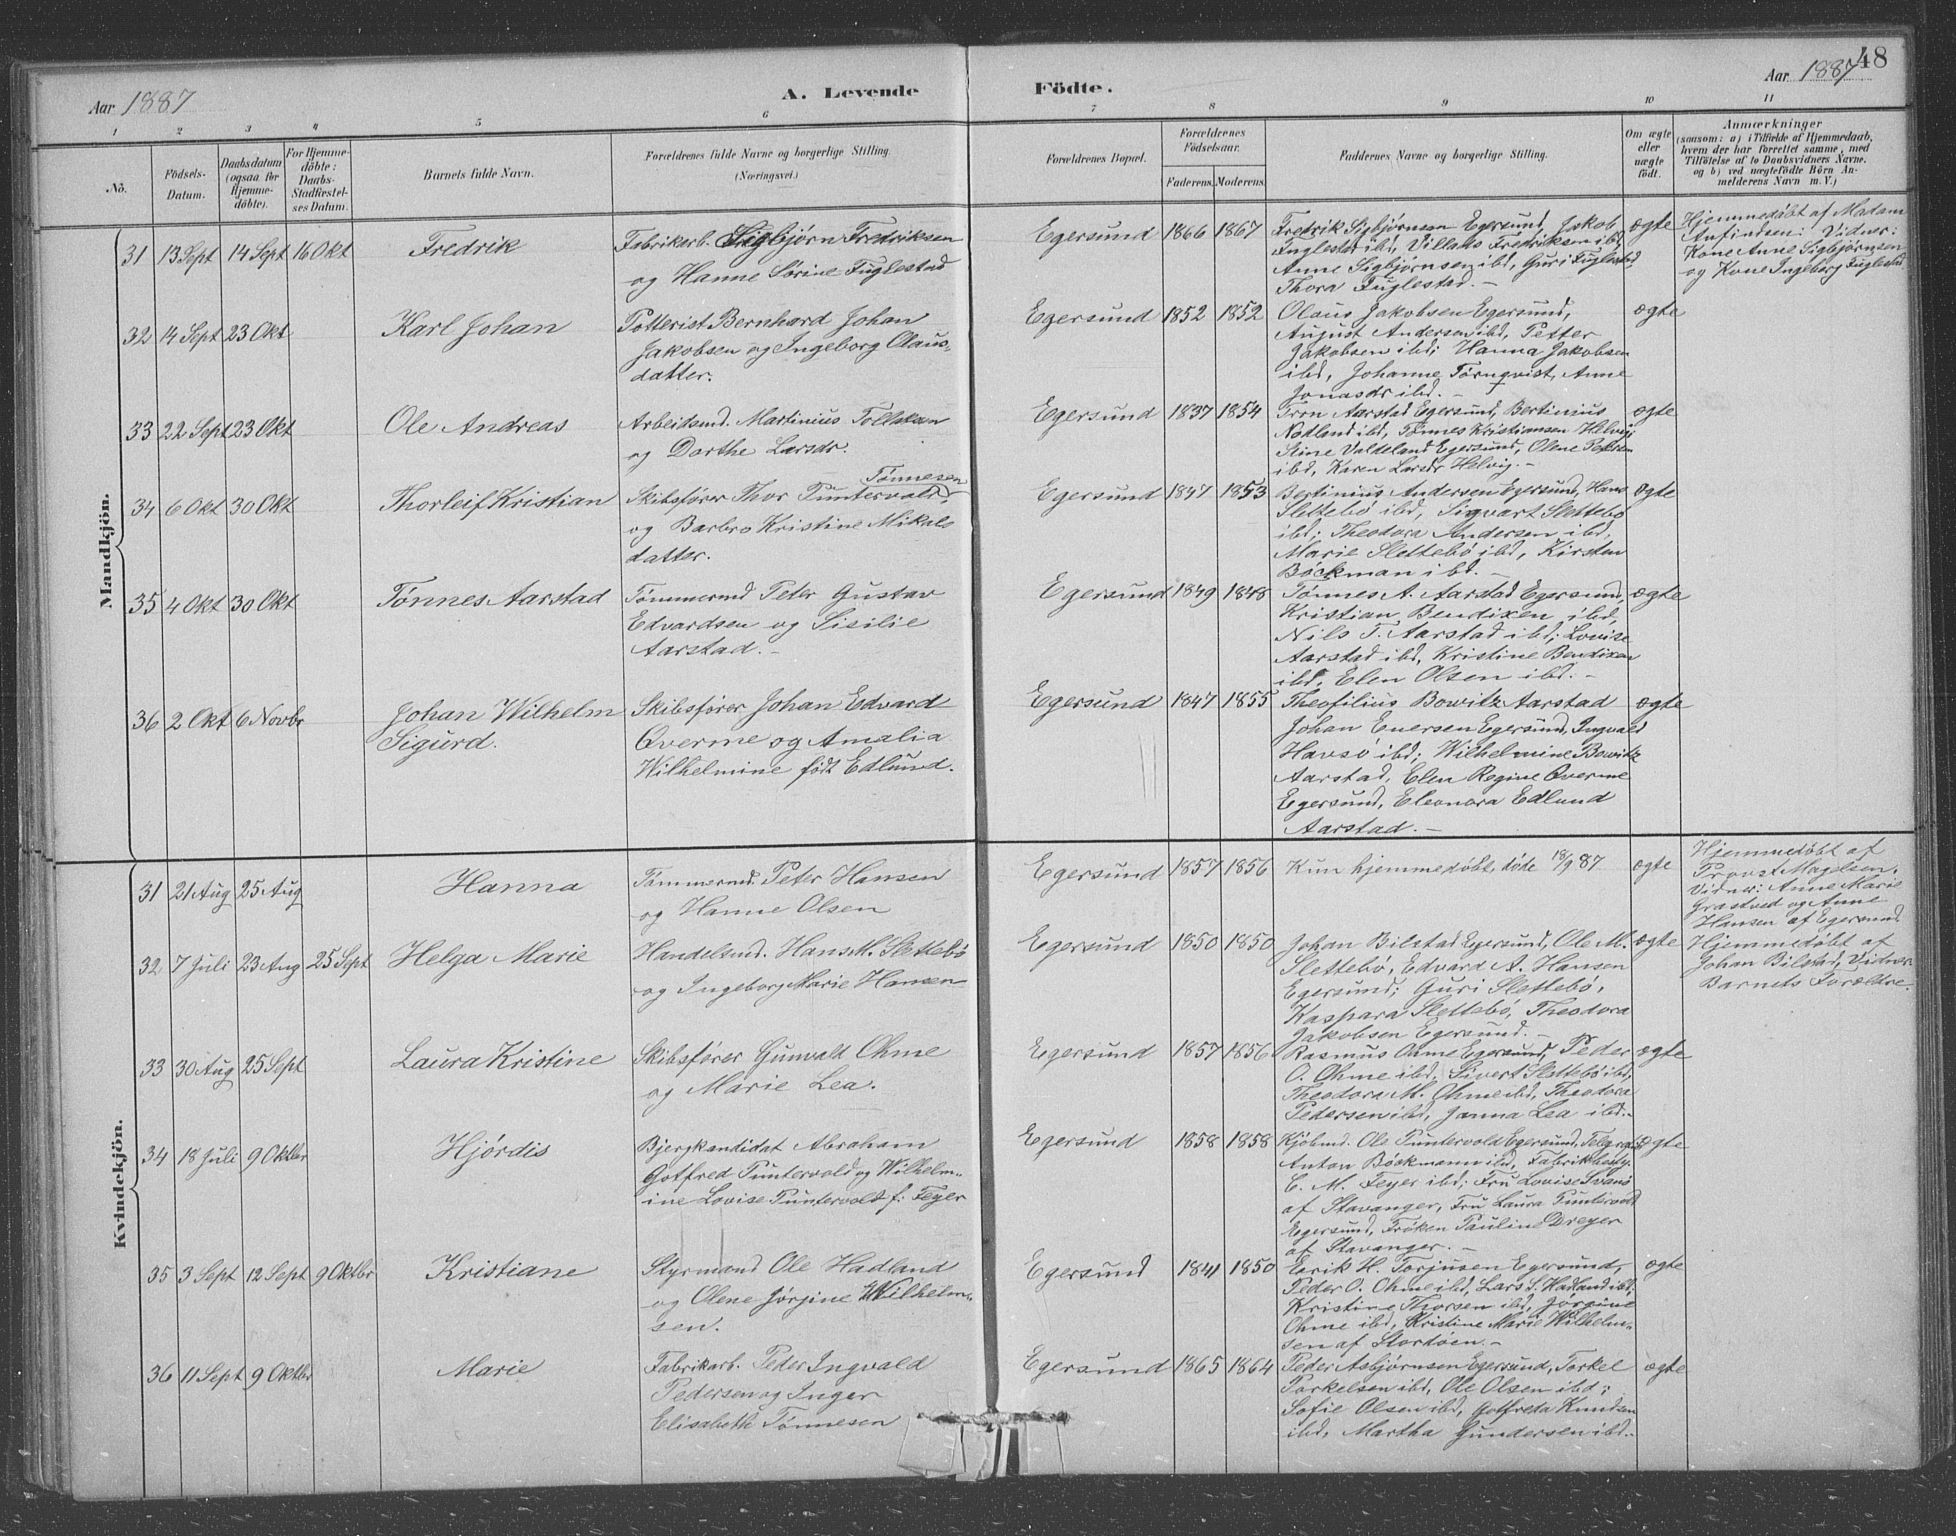 48
Aar 1887
A. Levende
Födte.
Aar 1887
1 2 3 4 5 6 7 8 9 10 11
No.
Födsels-
Datum.
Daabsdatum
(ogsaa for
Hjemme-
döbte).
For Hjemme-
döbte:
Daabs-
Stadfæstel-
ses Datum.
Barnets fulde Navn.
Forældrenes fulde Navne og borgerlige Stilling.
(Næringsvei.)
Forældrenes Bopæl.
Forældrenes
Födselsaar.
Faderens. Moderens.
Faddernes Navne og borgerlige Stilling.
Om ægte
eller
uægte
födt.
Anmærkninger
(saasom: a) i Tilfælde af Hjemmedaab,
hvem der har forrettet samme, med
Tilföielse af to Daabsvidners Navne.
og b) ved uægtefödte Börn An-
melderens Navn m. V.)
Mandkjön.
31 13 Sept 14 Sept 16 Okt Fredrik
Fabrikarb. Sigbjørn Fredriksen
og Hanne Sørine Fuglestad
Egersund 1866 1867
Fredrik Sigbjørnsen Egersund, Jakob
Fuglestad ibd, Fredriksen ibd,
Anne Sigbjørnsen ibd, Guri Fuglestad,
Thora Fuglestad. –
ægte
Hjemmedøbt af Madam
Anfindsen: Vidner:
Kone Anne Sigbjørnsen
og Kone Ingeborg Fuglestad
32 14 Sept 23 Okt Karl Johan
Potterist Bernhard Johan
Jakobsen og Ingeborg Olaus-
datter.
Egersund 1852 1852
Olaus Jakobsen Egersund,
August Andersen ibd, Petter
Jakobsen ibd; Hanna Jakobsen
ibd, Johanne Tørnqvist, Anne
Jonasdr ibd. –
ægte
33 22 Sept 23 Okt Ole Andreas
Arbeidsmd. Martinius Tollaksen
og Dorthe Larsdr.
Egersund 1837 1854
Tron Aarstad Egersund, Bertinius
Nodland ibd, Tønnes Kristiansen Helvig;
Stine Valdeland Egersund, Olene Petersen
ibd, Karen Larsdr Helvig. –
ægte
34 6 Okt 30 Okt Thorleif Kristian
Tønnesen
Skibsfører Thor Puntervold
og Barbro Kristine Mikals
datter.
Egersund 1847 1853
Bertinius Andersen Egersund, Hans
Slettebø ibd, Sigvart Slettebø
ibd; Theodora Andersen ibd,
Marie Slettebø ibd, Kirsten
Bøckman ibd. –
ægte
35 4 Okt 30 Okt Tønnes Aarstad
Tømmermd Peter Gustav
Edvardsen og Sisilie
Aarstad. –
Egersund 1849 1848
Tønnes A. Aarstad Egersund,
Kristian Bendixen ibd,
Nils T. Aarstad ibd; Lovise
Aarstad ibd, Kristine Bendixen
ibd, Elen Olsen ibd. –
ægte
36 2 Okt 6 Novbr Johan Wilhelm
Sigurd.
Skibsfører Johan Edvard
Qverme og Amalia
Wilhelmine født Edlund.
Egersund 1847 1855
Theofilius Bowitz Aarstad
Johan Enersen Egersund, Ingvald
Havsø ibd; Wilhelmine Bowitz
Aarstad, Elen Regine Qverme
Egersund, Eleonora Edlund
Aarstad. –
ægte
Kvindekjön.
31 21 Aug 25 Aug Hanna
Tømmermd. Peter Hansen
og Hanne Olsen
Egersund 1857 1856
Kun hjemmedøbt, døde 18/9 87
ægte
Hjemmedøbt af
Provst Magelsen.
Vidner: Anne Marie
Grastved og Anne
Hansen af Egersund
32 7 Juli 23 Aug 25 Sept Helga Marie
Handelsmd. Hans M. Slettebø
og Ingeborg Marie Hansen
Egersund 1850 1850
Johan Bilstad Egersund, Ole M.
Slettebø, Edvard A. Hansen
Egersund; Guri Slettebø,
Kaspara Slettebø, Theodora
Jakobsen Egersund. –
ægte
Hjemmedøbt af
Johan Bilstad, Vidner
Barnets Forældre.
33 30 Aug 25 Sept Laura Kristine
Skibsfører Gunvald Ohme
og Marie Lea.
Egersund 1857 1856
Rasmus Ohme Egersund, Peder
O. Ohme ibd, Sivert Slettebø ibd,
Theodora M. Ohme ibd, Theodora
Pedersen ibd, Janna Lea ibd.
ægte
34 18 Juli 9 Oktbr Hjørdis
Bjergkandidat Abraham
Gotfred Puntervold og Wilhelm-
ine Lovise Puntervold f: Feyer
Egersund 1858 1858
Kjøbmd. Ole Puntervold Egersund,
Anton Bøckmann ibd, Fabrikbesty.
C. M. Feyer ibd; Fru Lovise Svanø
af Stavanger, Fru Laura Puntervold
Egersund, Frøken Pauline Dreyer
af Stavanger. –
ægte
35 3 Sept 12 Sept 9 Oktbr Kristiane
Styrmand Ole Hadland
og Olene Jørgine Wilhelm-
sen.
Egersund 1841 1850
Eerik H. Torjusen Egersund,
Peder O. Ohme ibd, Lars L. Hadland ibd;
Kristine Thorsen ibd, Jørgine
Ohme ibd, Kristine Marie Wilhelm-
sen af Stordøen. –
ægte
36 11 Sept 9 Oktbr Marie
Fabrikarb. Peder Ingvald
Pedersen og Inger
Elisabeth Tønnesen
Egersund 1865 1864
Peder Asbjørnsen Egersund, Torkel
Torkelsen ibd, Ole Olsen ibd;
Sofie Olsen ibd, Gotfreda Knudsen
ibd, Martha Gundersen ibd.
ægte